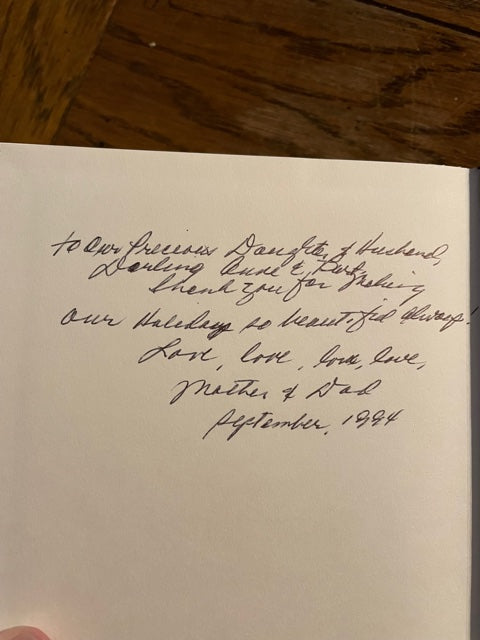 to Our Precious Daughter & Husband,
Darling Anne &
Thank you for Making
Our Holidays so beautiful always!
Love, love, love, love,
Mother & Dad
September, 1994